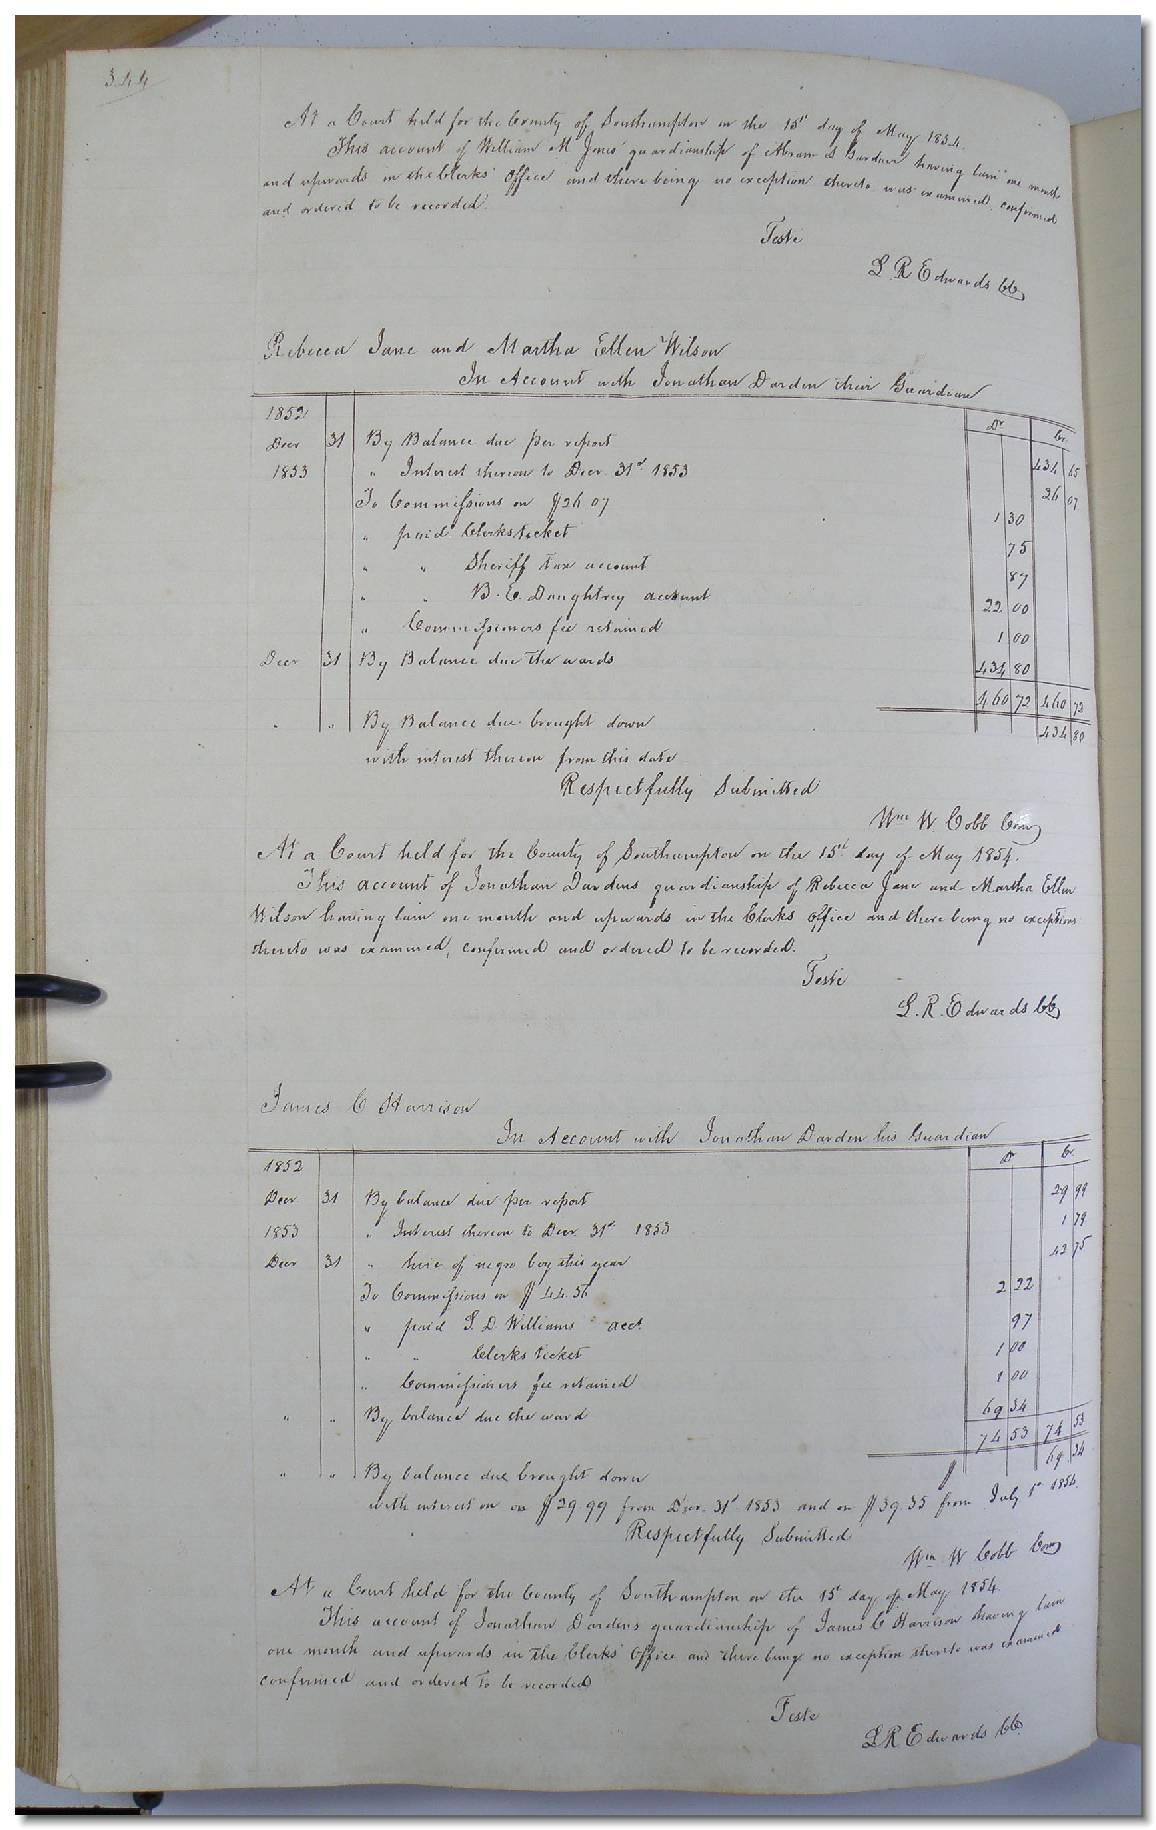 344
At a Court held for the County of Southampton on the 15th day of May 1854.
This account of William M Jones' guardianship of Abram S Gardner having lain one month
and upwards in the Clerks' Office and there being no exception thereto was examined, confirmed
and ordered to be recorded.
Teste
L R Edwards CC
Rebecca Jane and Martha Ellen Wilson
In Account with Jonathan Darden their Guardian
1852 Dr Cr
Decr 31 By Balance due per report 434 65
1853 " Interest thereon to Decr 31st 1853 26 07
To Commissions on $26 07 1 30
" paid Clerks ticket 75
" " Sheriff tax account 87
" " B. E. Daughtrey account 22 00
" Commissioners fee retained 1 00
Decr 31 By Balance due the wards 434 80
460 72 460 72
" " By Balance due brought down 434 80
with interest thereon from this date
Respectfully Submitted
Wm W. Cobb Com
At a Court held for the County of Southampton on the 15th day of May 1854.
This account of Jonathan Dardens guardianship of Rebecca Jane and Martha Ellen
Wilson having lain one month and upwards in the Clerks Office and there being no exception
thereto was examined, confirmed and ordered to be recorded.
Teste
L. R. Edwards CC
James C Harrison
In Account with Jonathan Darden his Guardian
1852 Dr Cr
Decr 31 By balance due per report 29 99
1853 " Interest thereon to Decr 31st 1853 1 79
Decr 31 " hire of negro boy this year 42 75
To Commissions on $44.56 2 22
" paid L. D. Williams acct. 97
" " Clerks ticket 1 00
" Commissioners fee retained 1 00
" " By balance due the ward 69 34
74 53 74 53
" " By balance due brought down 69 34
with interest on on $29.99 from Decr 31st 1853 and on $39.35 from July 1st 1854.
Respectfully Submitted
Wm W Cobb Com
At a Court held for the County of Southampton on the 15th day of May 1854.
This account of Jonathan Dardens guardianship of James C Harrison having lain
one month and upwards in the Clerks' Office and there being no exception thereto was examined
confirmed and ordered to be recorded
Teste
L R Edwards CC.